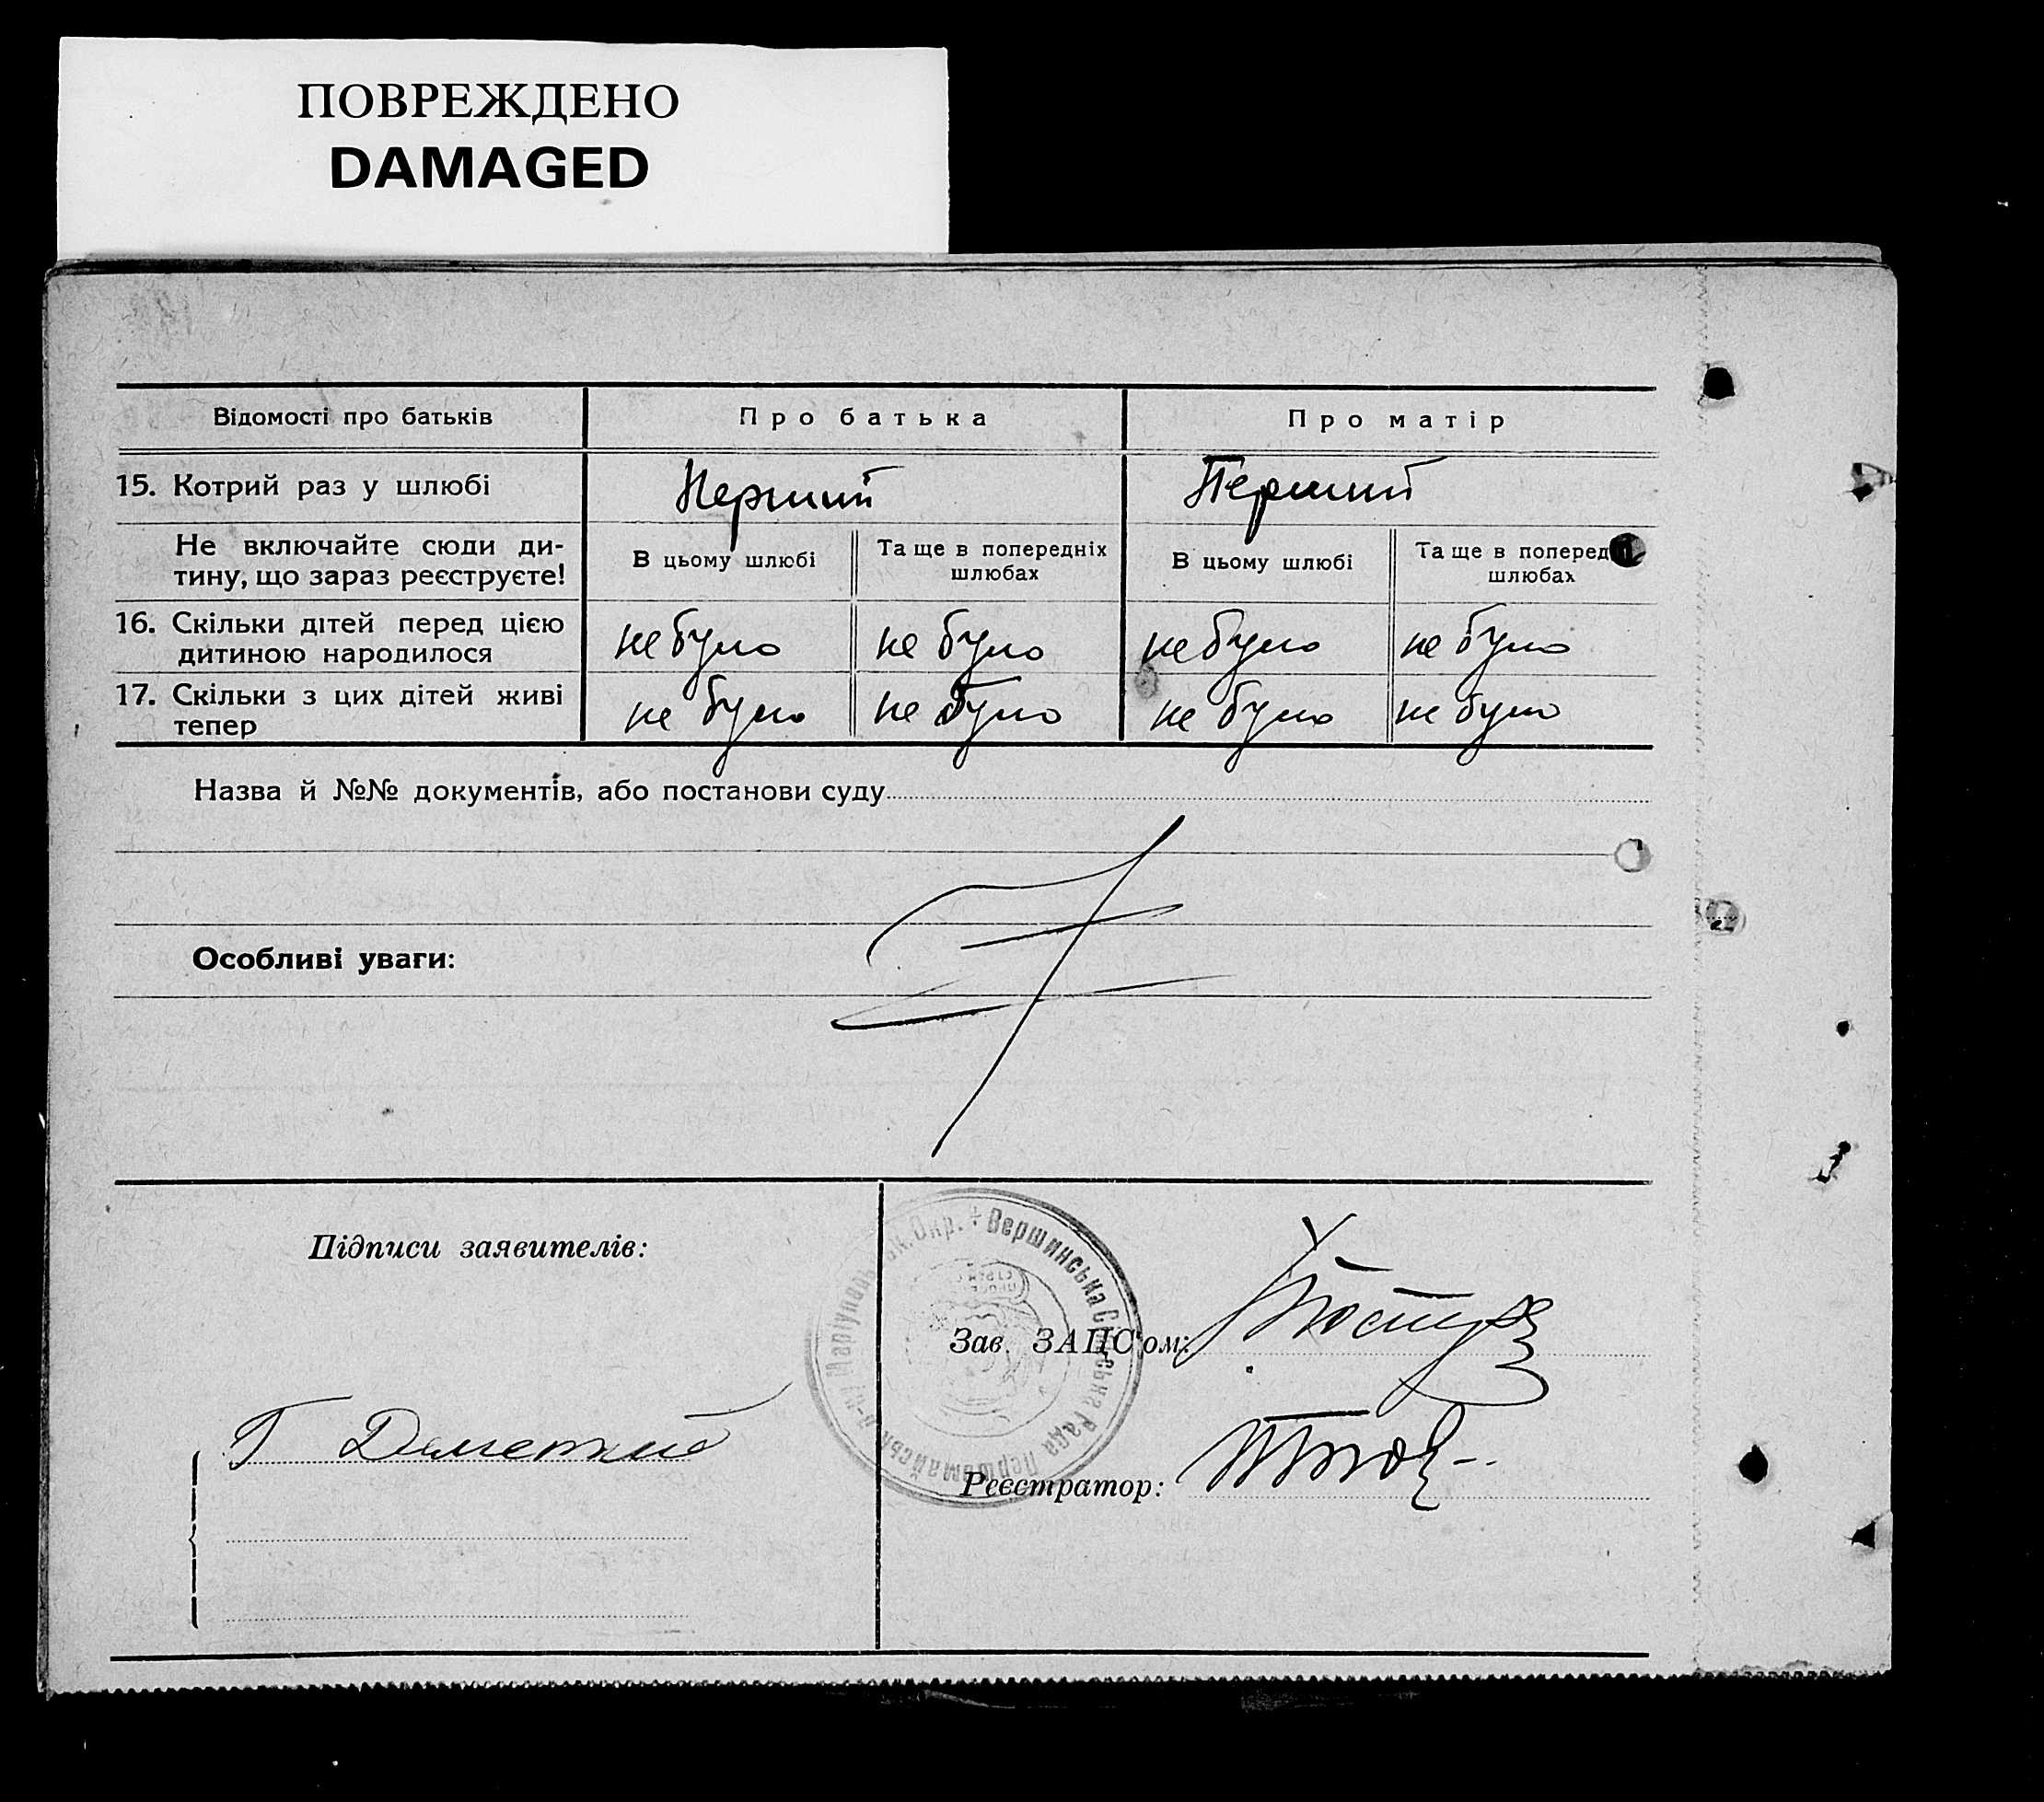 ПОВРЕЖДЕНО
DAMAGED
Відомості про батьків
Про батька
Про матір
15. Котрий раз у шлюбі
Перший
Перший
Не включайте сюди ди-
тину, що зараз реєструєте!
В цьому шлюбі
Та ще в попередніх
шлюбах
В цьому шлюбі
Та ще в поперед
шлюбах
16. Скільки дітей перед цією
дитиною народилося
не було
не було
не було
не було
17. Скільки з цих дітей живі
тепер
не було
не було
не було
не було
Назва й №№ документів, або постанови суду
Особливі уваги:
Підписи заявителів:
Окр. + Вершинська Сільська Рада Першомайськ
Зав. ЗАПС'ом:
Г
Реєстратор: